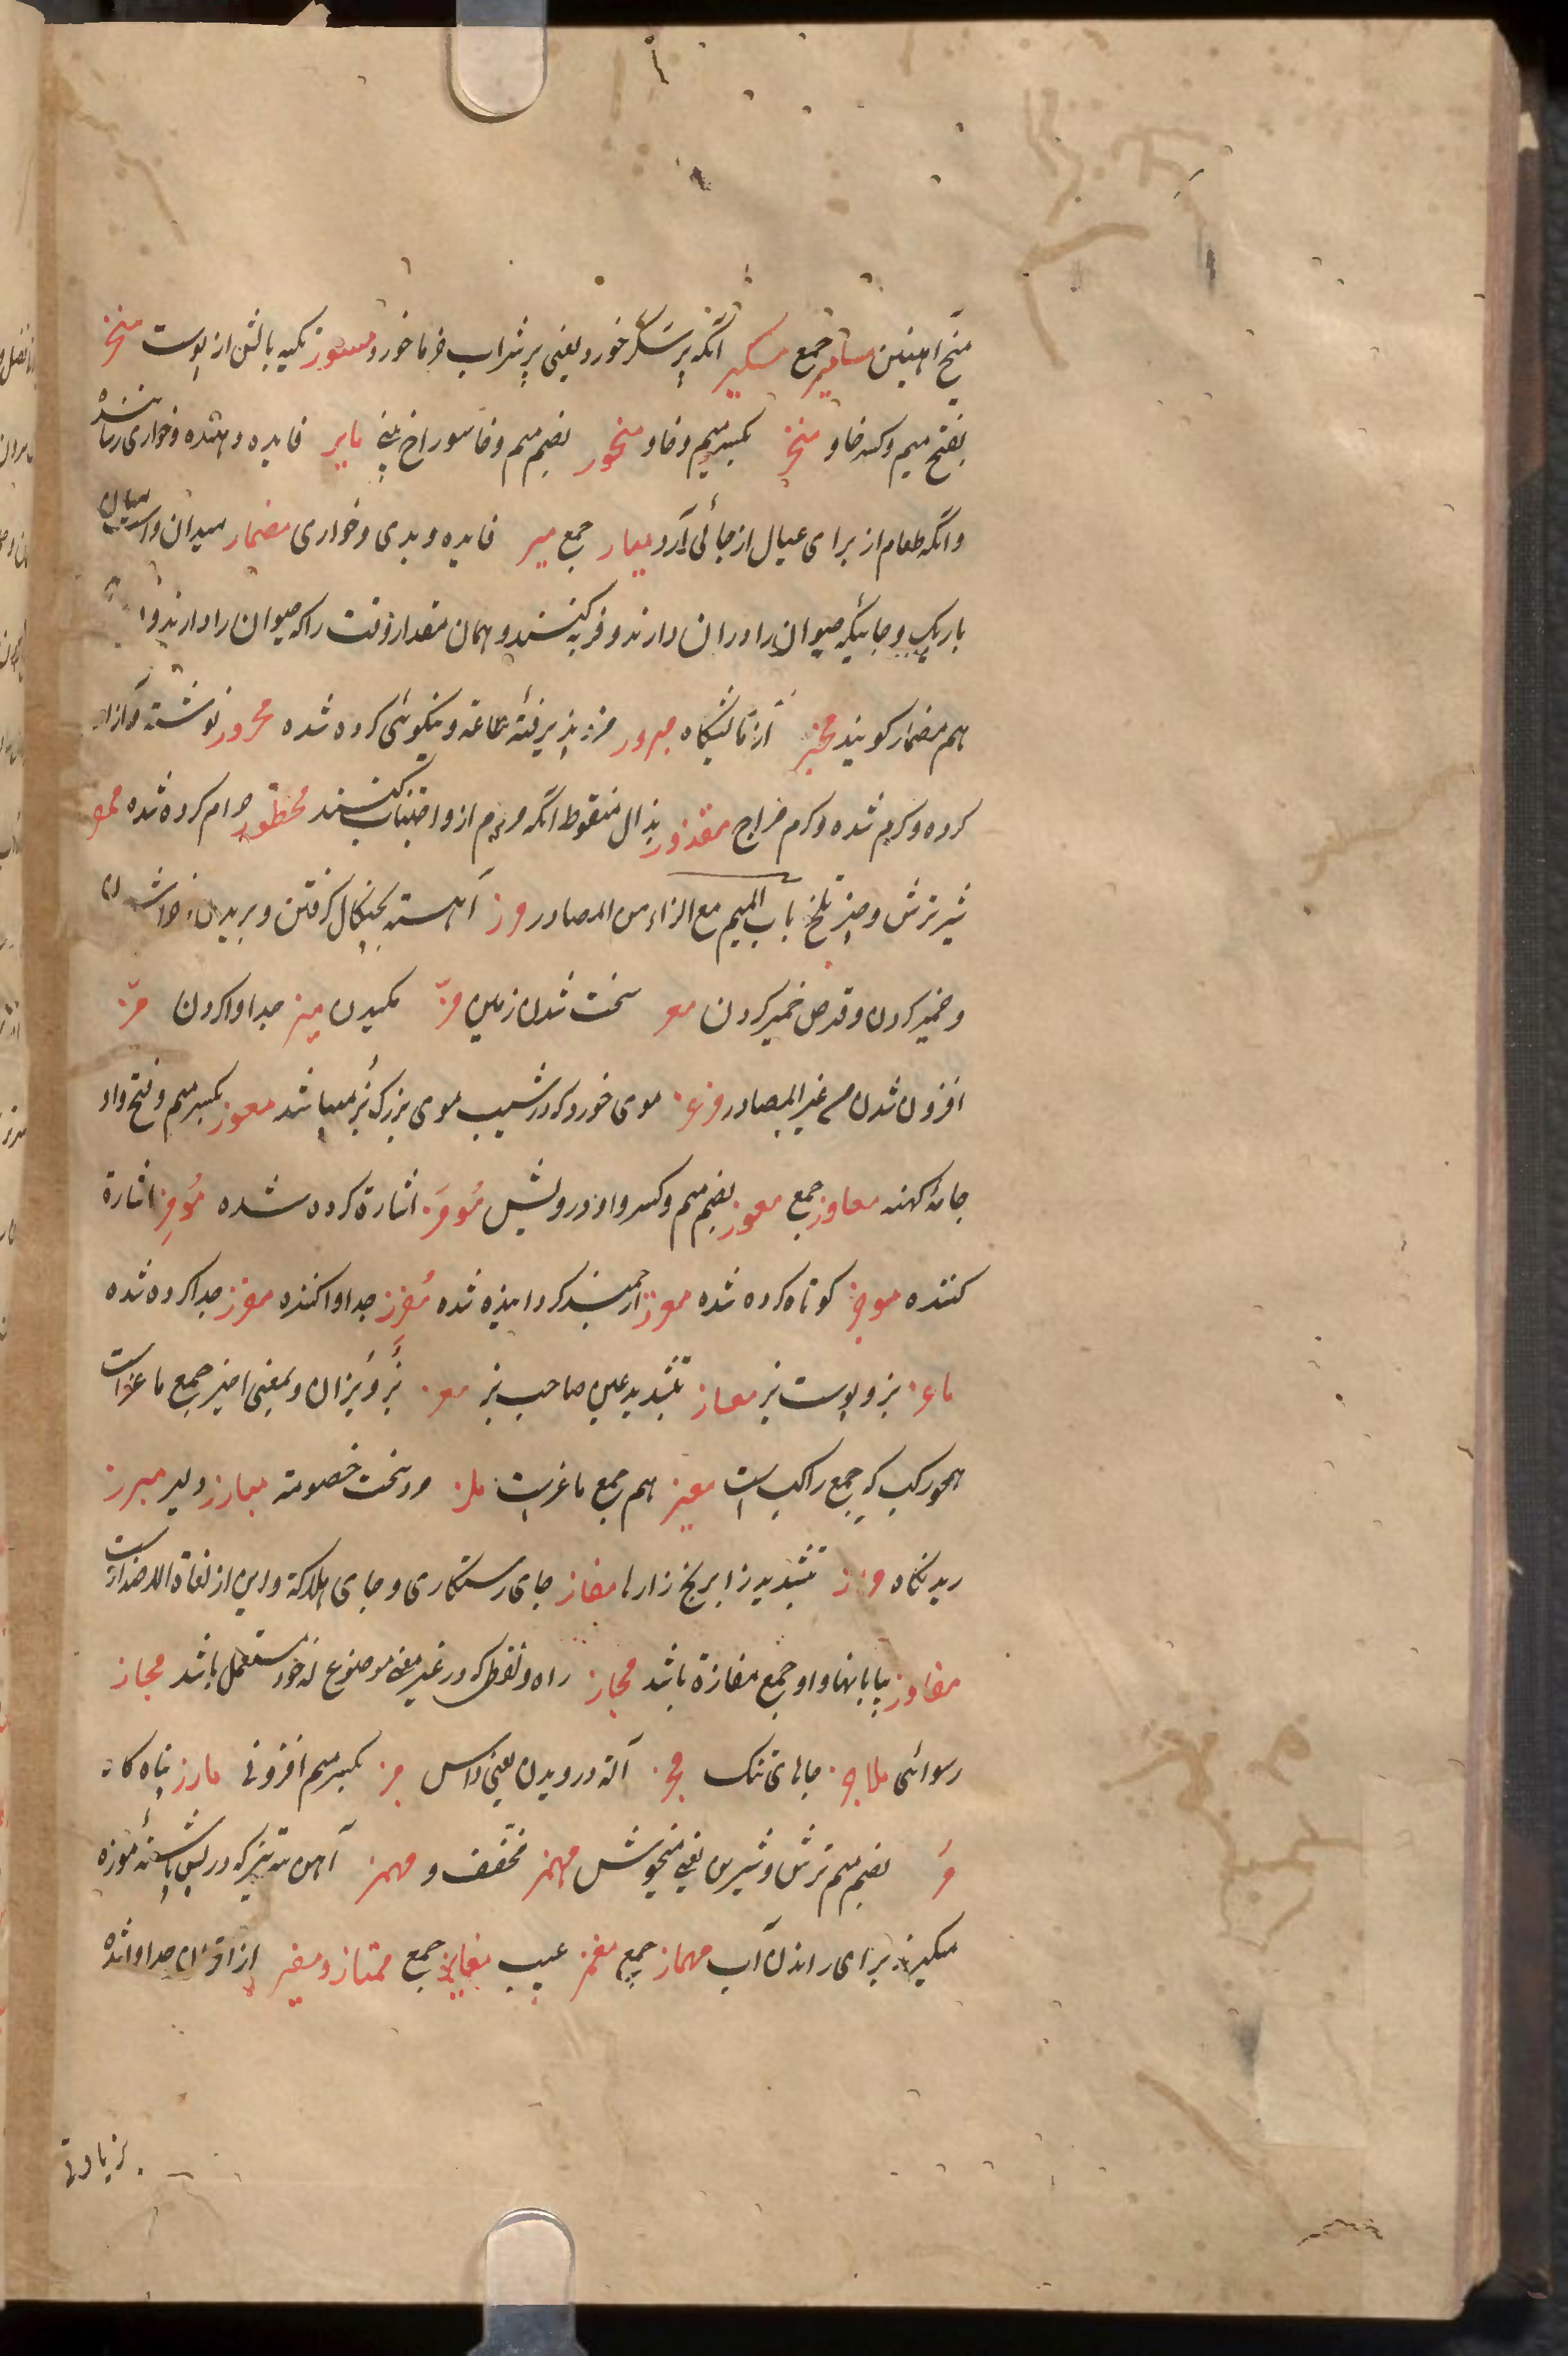 میخ آهنین مسامیر جمع مسکیر آنکه پر سکر خورد یعنی پر شراب خرما خورد مسور تکیه بالش از پوست منخر
بفتح میم و کسر خا و منخر بکسر میم و خا و منخور بضم میم و خا سوراخ بینی مایر فایده دهنده و خواری رساننده
و آنکه طعام از برای عیال از جائی آرد میار جمع میر فایده و بدی و خواری مضمار میدان و اسپ میان
باریک و جائیکه حیوان را دران دارند و فربه کنند و همان مقدار وقت را که حیوان را دارند
هم مضمار کویند مخبر مبرور پذیرفته طاعة و نیکوئی کرده شده محرور نوشته و آزاد
کرده و کرم شده و کرم مزاج مقذور بذال منقوط آنکه مردم ازو اجتناب کنند محظور حرام کرده شده ممقر
شیر ترش و چیز تلخ باب المیم مع الزاء من المصادر مرز آهسته بچنکال کرفتن و بریدن و خراشیدن
و خمیر کردن و قرص خمیر کردن معز سخت شدن زمین مز مکیدن میز جدا واکردن مز
افزون شدن من غیر المصادر مرعز موی خورد که در شیب موی بزرک بز میباشد معوز بکسر میم و فتح واو
جامه کهنه معاوز جمع معوز بضم میم و کسر واو درویش مومز اشارة کرده شده مومز اشارة
کننده موجز کوتاه کرده شده معزز ارجمند کردانیده شده مفرز جدا واکننده مفرز جدا کرده شده
ماعز بز و پوست بز معاز بتشدید عین صاحب بز معز بز و بزان و بمعنی اخیر جمع ماعز است
همچو رکب که جمع راکب است معیز هم جمع ماعز است ملز مرد سخت خصومة مبارز دلیر مبرز
ریدنکاه مرز بتشدید زا برنج زارها مفاز جای رستکاری و جای هلاکة و این از لغاة الاضداد است
مفاوز بیابانها و او جمع مفازة باشد مجاز راه و لفظی که در غیر معنی موضوع له خود مستعمل باشد مجاز
رسوائی ملاجز جاهای تنک مجز آلة درویدن یعنی داس مز بکسر میم افزونی مارز پناه کاه
مز بضم میم ترش و شیرین یعنی میخوش مهمز مخفف و مهمز آهن ته تیز که در پس پاشنه موزه
میکیرند برای راندن اسب مهماز جمع مغمز عیب مغامز جمع ممتاز و ممیز از اقران جدا واشده
زیادتی